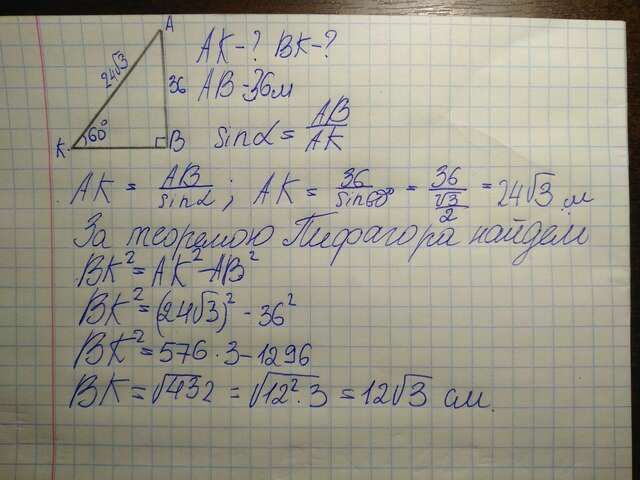 A
AK-? BK-?
24√3
36
AB=36м
60°
K
B
sinα = AB/AK
AK = AB/sinα; AK = 36/sin60° = 36/(√3/2) = 24√3 м
За теоремою Пифагора найдем
BK² = AK² - AB²
BK² = (24√3)² - 36²
BK² = 576 · 3 - 1296
BK = √432 = √12² · 3 = 12√3 см.